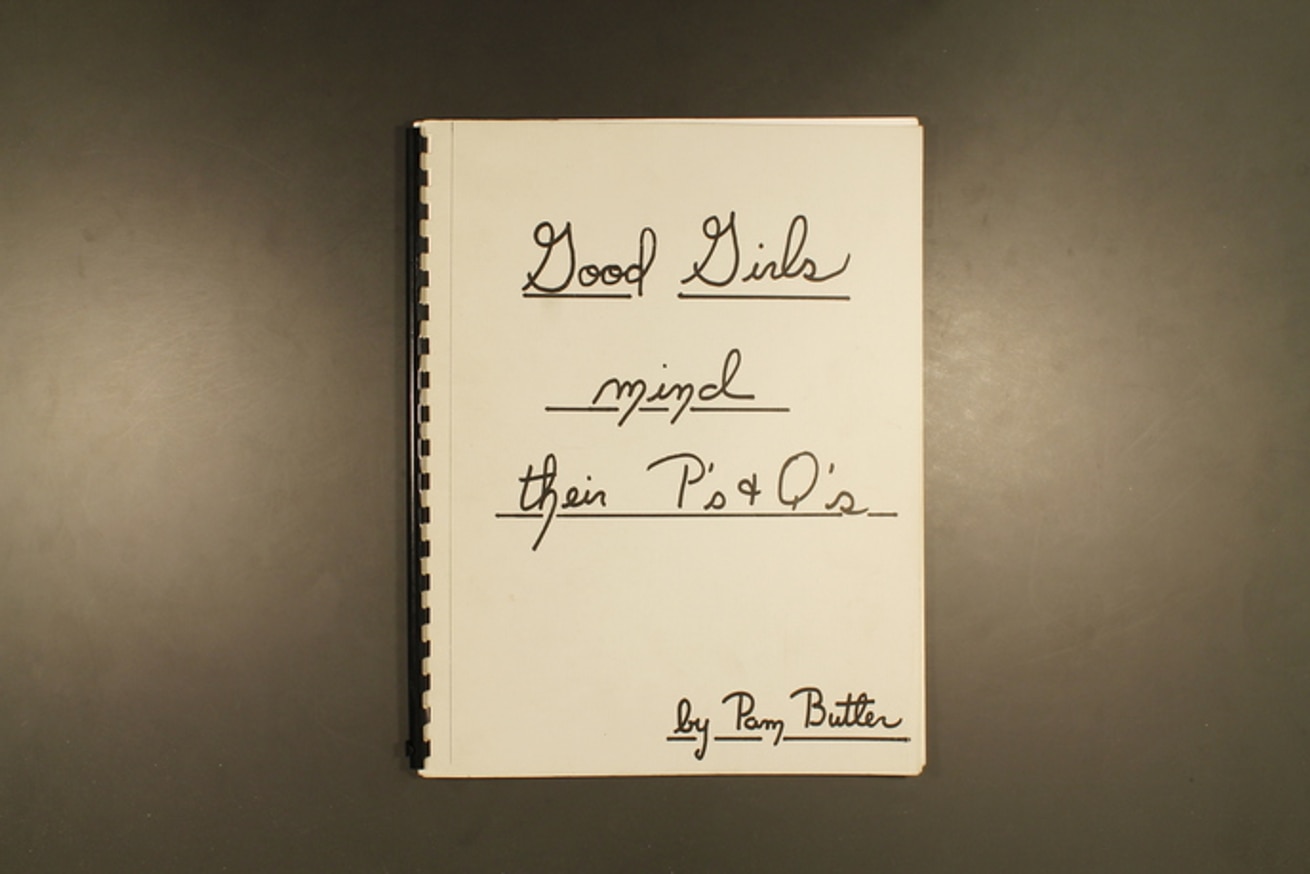 Good Girls
mind
their P's & Q's
by Pam Butler